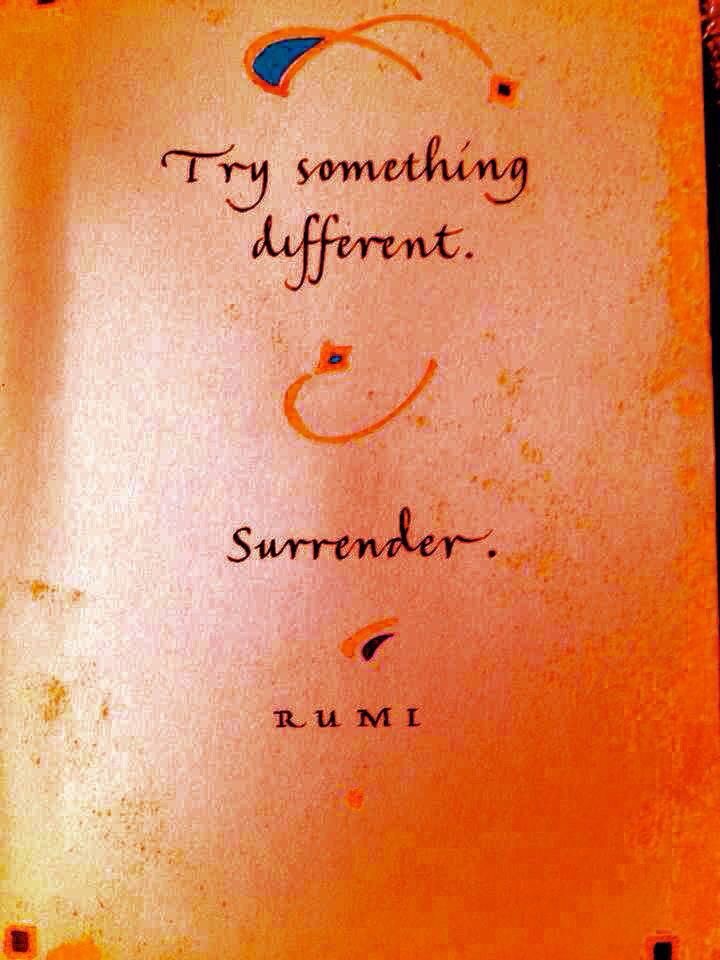 Try something
different.
Surrender.
RUMI